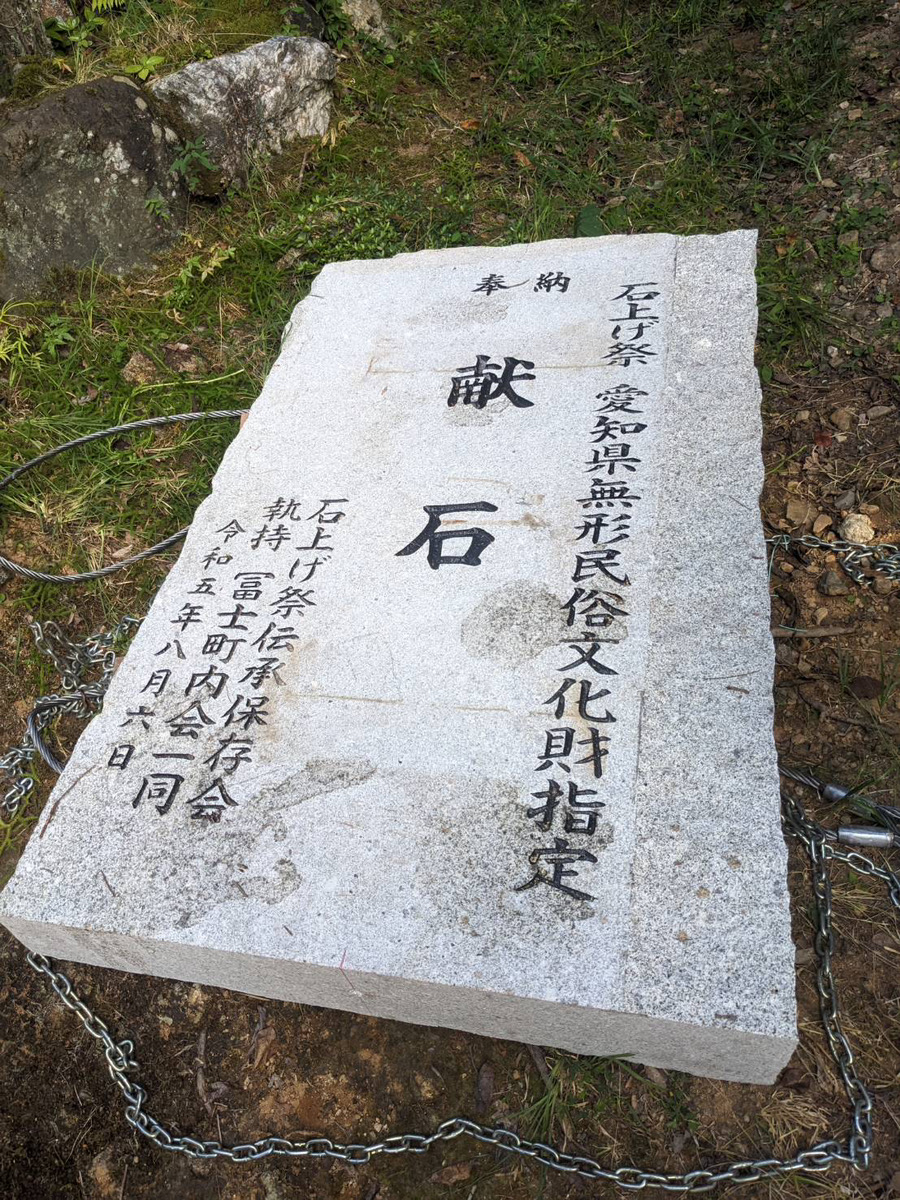 石上げ祭 愛知県無形民俗文化財指定
奉納
献石
石上げ祭伝承保存会
執持 冨士町内会一同
令和五年八月六日